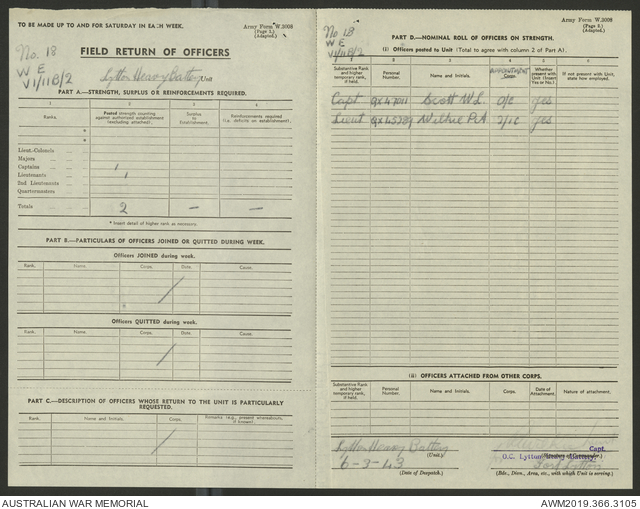 TO BE MADE UP TO AND FOR SATURDAY IN EACH WEEK.
Army Form W.3008
(Page 1.)
(Adapted.)
No. 18
W E
VI/11B/2
FIELD RETURN OF OFFICERS
Lytton Heavy Battery Unit
PART A.—STRENGTH, SURPLUS OR REINFORCEMENTS REQUIRED.
1 2 3 4
Ranks. Posted strength counting against authorized establishment (excluding attached). Surplus to Establishment. Reinforcements required (i.e. deficits on establishment).
*
*
Lieut.-Colonels
Majors
Captains 1
Lieutenants 1
2nd Lieutenants
Quartermasters
Totals 2 — —
* Insert detail of higher rank as necessary.
PART B.—PARTICULARS OF OFFICERS JOINED OR QUITTED DURING WEEK.
Officers JOINED during week.
Rank. Name. Corps. Date. Cause.
Officers QUITTED during week.
Rank. Name. Corps. Date. Cause.
PART C.—DESCRIPTION OF OFFICERS WHOSE RETURN TO THE UNIT IS PARTICULARLY REQUESTED.
Rank. Name and Initials. Corps. Remarks (e.g., present whereabouts, if known).
Army Form W.3008
(Page 2.)
(Adapted.)
No. 18
W E
VI/11B/2
PART D.—NOMINAL ROLL OF OFFICERS ON STRENGTH.
(i) Officers posted to Unit (Total to agree with column 2 of Part A).
Substantive Rank and higher temporary rank, if held. Personal Number. Name and Initials. APPOINTMENT Corps. Whether present with Unit (Insert Yes or No.). If not present with Unit, state how employed.
Capt Scott W.L. O/C yes
Lieut 2/i/c yes
(ii) OFFICERS ATTACHED FROM OTHER CORPS.
Substantive Rank and higher temporary rank, if held. Personal Number. Name and Initials. Corps. Date of Attachment. Nature of attachment.
Lytton Heavy Battery
(Unit.)
6-3-43
(Date of Despatch.)
Capt.
O.C. Lytton Heavy Battery.
(Signature of Commander.)
Fort Lytton
(Bde., Divn., Area, etc., with which Unit is serving.)
AUSTRALIAN WAR MEMORIAL
AWM2019.366.3105